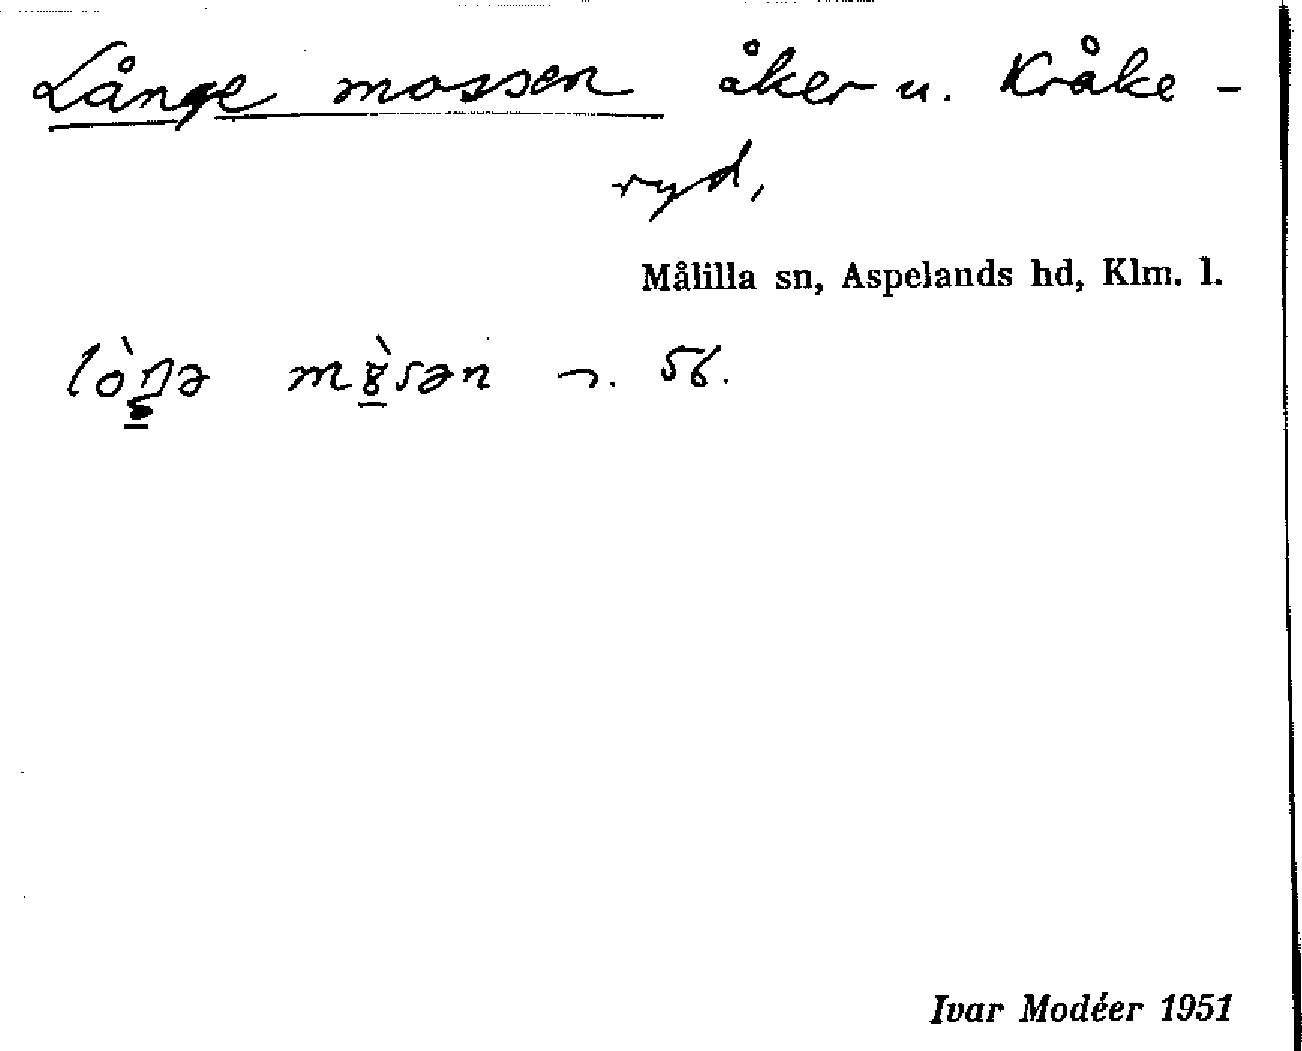 Långe mossen åker u. Kråke-
ryd,
Målilla sn, Aspelands hd, Klm. l.
lòŋə m8̀sən ¬. 56.
Ivar Modéer 1951